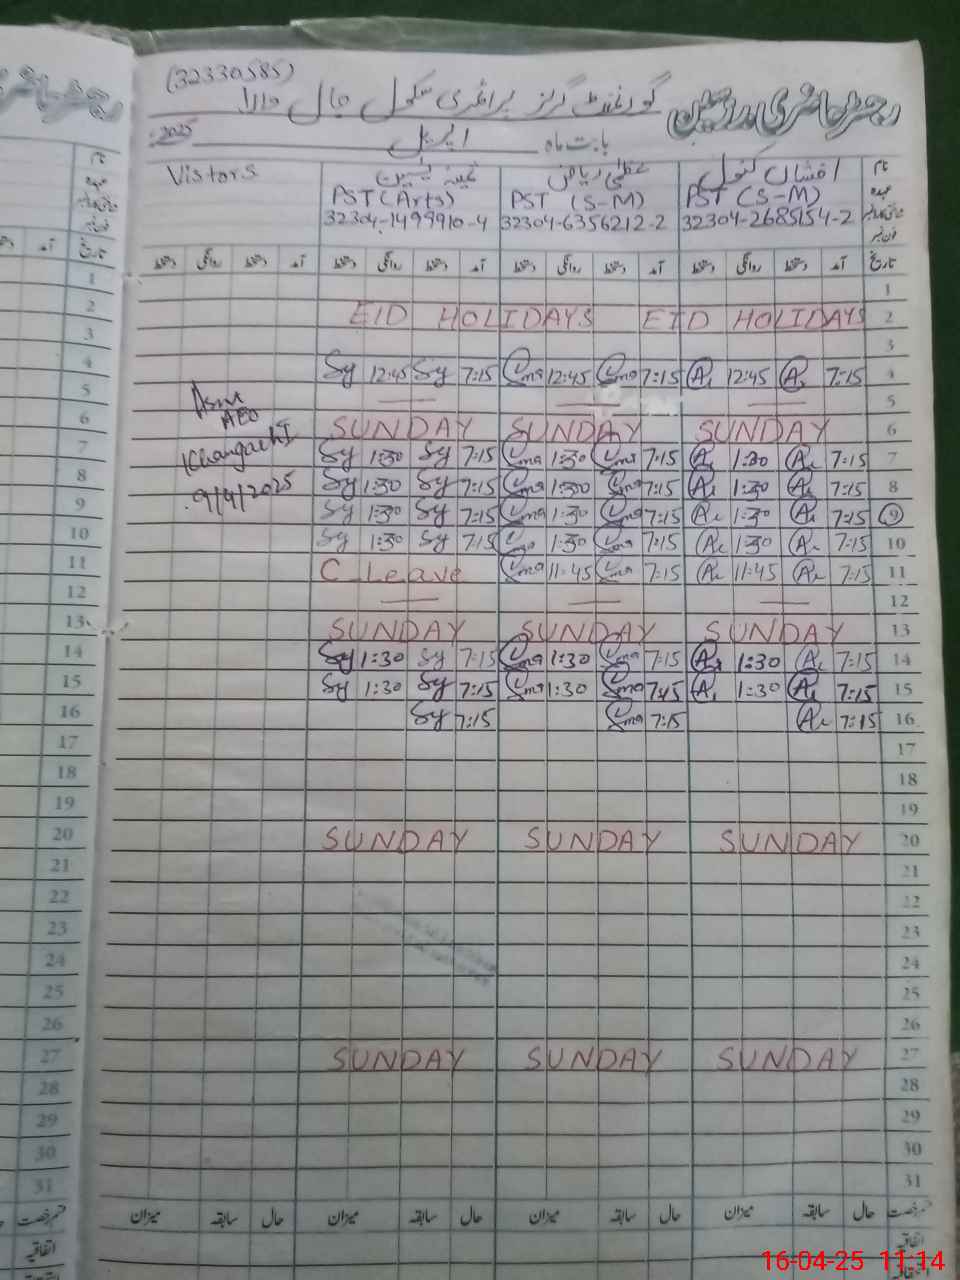 (32330585)
رجسٹر حاضری مدرسین گورنمنٹ گرلز پرائمری سکول
2025 اپریل بابت ماہ
نام افشاں کنول عظمیٰ ریاض ثمینہ یٰسین Vistors
عہدہ PST (S-M) PST (S-M) PST (Arts)
32304-2685154-2 32304-6356212-2 32304-1499910-4
تاریخ آمد دستخط روانگی دستخط آمد دستخط روانگی دستخط آمد دستخط روانگی دستخط آمد دستخط روانگی دستخط
1
EID HOLIDAYS EID HOLIDAYS 2
3
Sy 12:45 Sy 7:15 Uma 12:45 Uma 7:15 A 12:45 A 7:15 4
— — — 5
SUNDAY SUNDAY SUNDAY 6
Sy 1:30 Sy 7:15 Uma 1:30 Uma 7:15 A 1:30 A 7:15 7
Sy 1:30 Sy 7:15 Uma 1:30 Uma 7:15 A 1:30 A 7:15 8
Sy 1:30 Sy 7:15 Uma 1:30 Uma 7:15 A 1:30 A 7:15 9
Sy 1:30 Sy 7:15 Uma 1:30 Uma 7:15 A 1:30 A 7:15 10
C Leave Uma 11:45 Uma 7:15 A 11:45 A 7:15 11
— — — 12
SUNDAY SUNDAY SUNDAY 13
Sy 1:30 Sy 7:15 Uma 1:30 Uma 7:15 A 1:30 A 7:15 14
Sy 1:30 Sy 7:15 Uma 1:30 Uma 7:15 A 1:30 A 7:15 15
Sy 7:15 Uma 7:15 A 7:15 16
AEO
9/4/2025
17
18
19
SUNDAY SUNDAY SUNDAY 20
21
22
23
24
25
26
SUNDAY SUNDAY SUNDAY 27
28
29
30
31
قسم رخصت حال سابقہ میزان حال سابقہ میزان حال سابقہ میزان حال سابقہ میزان
اتفاقیہ
16-04-25 11:14